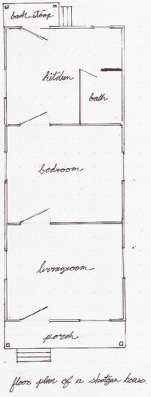 back stoop
kitchen
bath
bedroom
livingroom
porch
floor plan of a shotgun house.